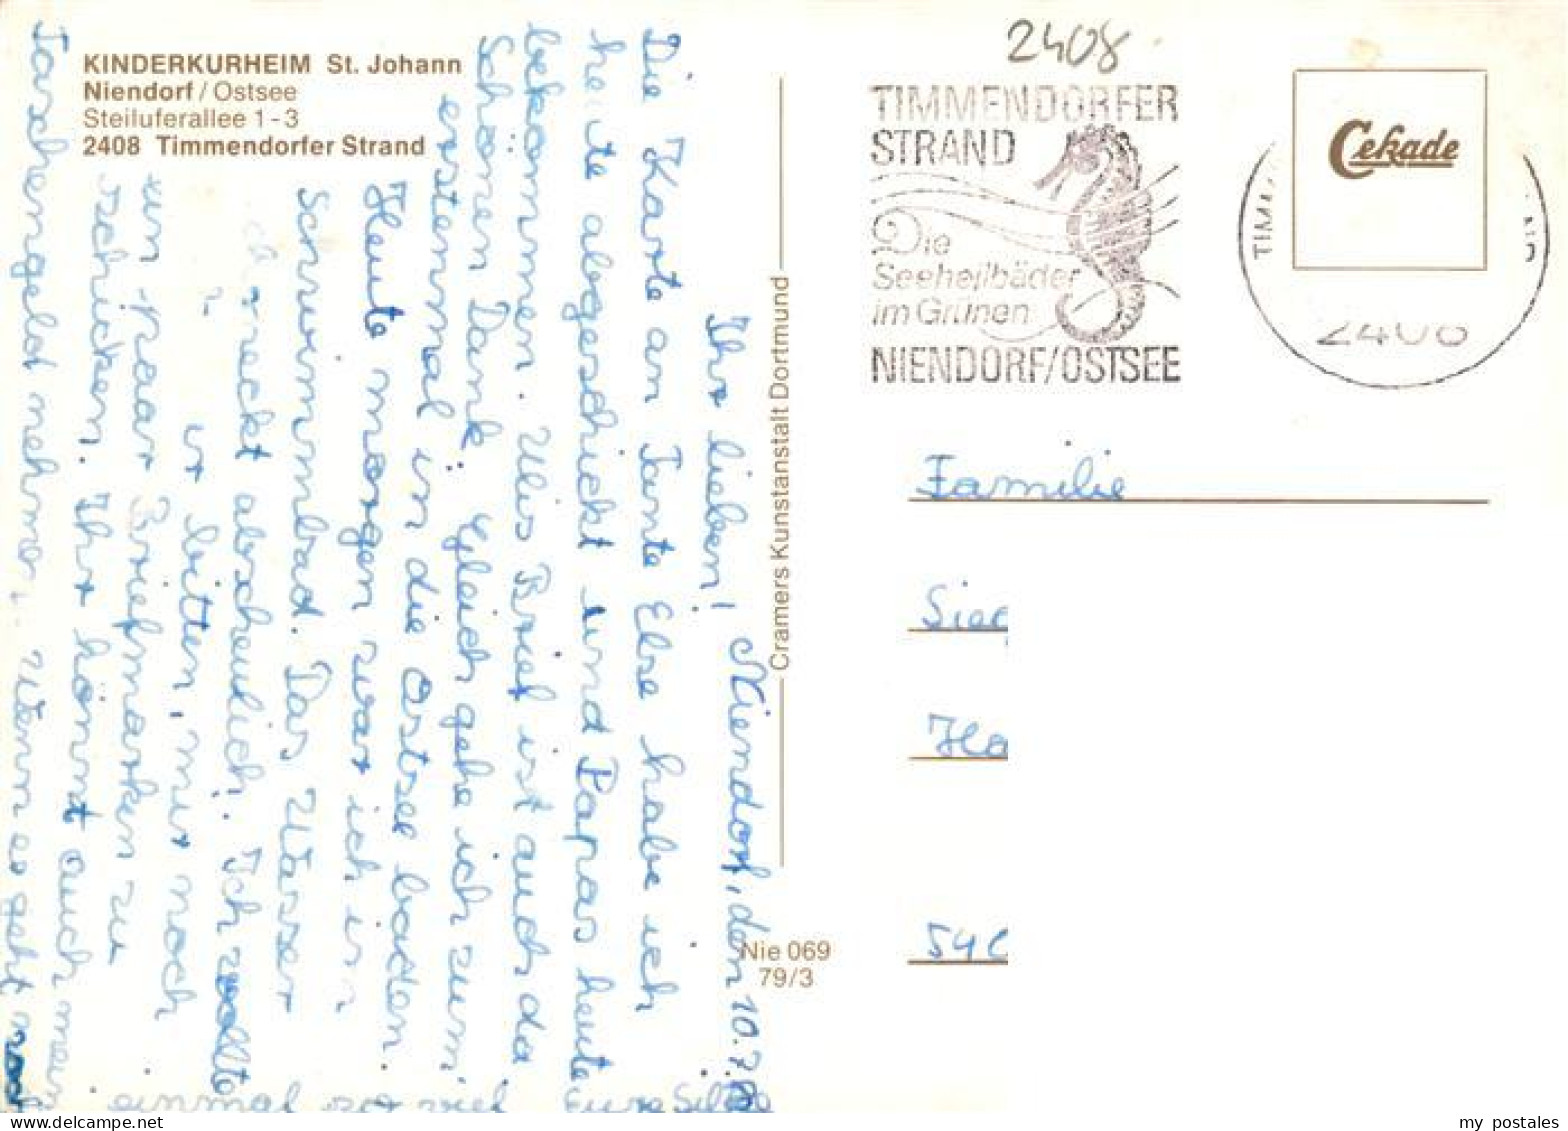 KINDERKURHEIM St. Johann
Niendorf / Ostsee
Steiluferallee 1-3
2408 Timmendorfer Strand
2408
TIMMENDORFER
STRAND
Die
Seeheilbäder
im Grünen
NIENDORF/OSTSEE
Cekade
TIMM
2408
Familie
Siec
Ha
Cramers Kunstanstalt Dortmund
Nie 069
79/3
Niendorf, den 10.7.80
Ihr lieben!
Die Karte an Tante Else habe ich
heute abgeschickt und Papas heute
bekommen. Ulis Brief ist auch da.
Schönen Dank. Gleich gehe ich zum
erstenmal in die Ostsee baden.
Heute morgen war ich im
Schwimmbad. Das Wasser
schmeckt abscheulich. Ich wollte
bitten, mir noch
ein paar Briefmarken zu
schicken. Ihr könnt auch mein
Taschengeld nehmen. Wenn es geht noch
einmal so viel
eure
my postales